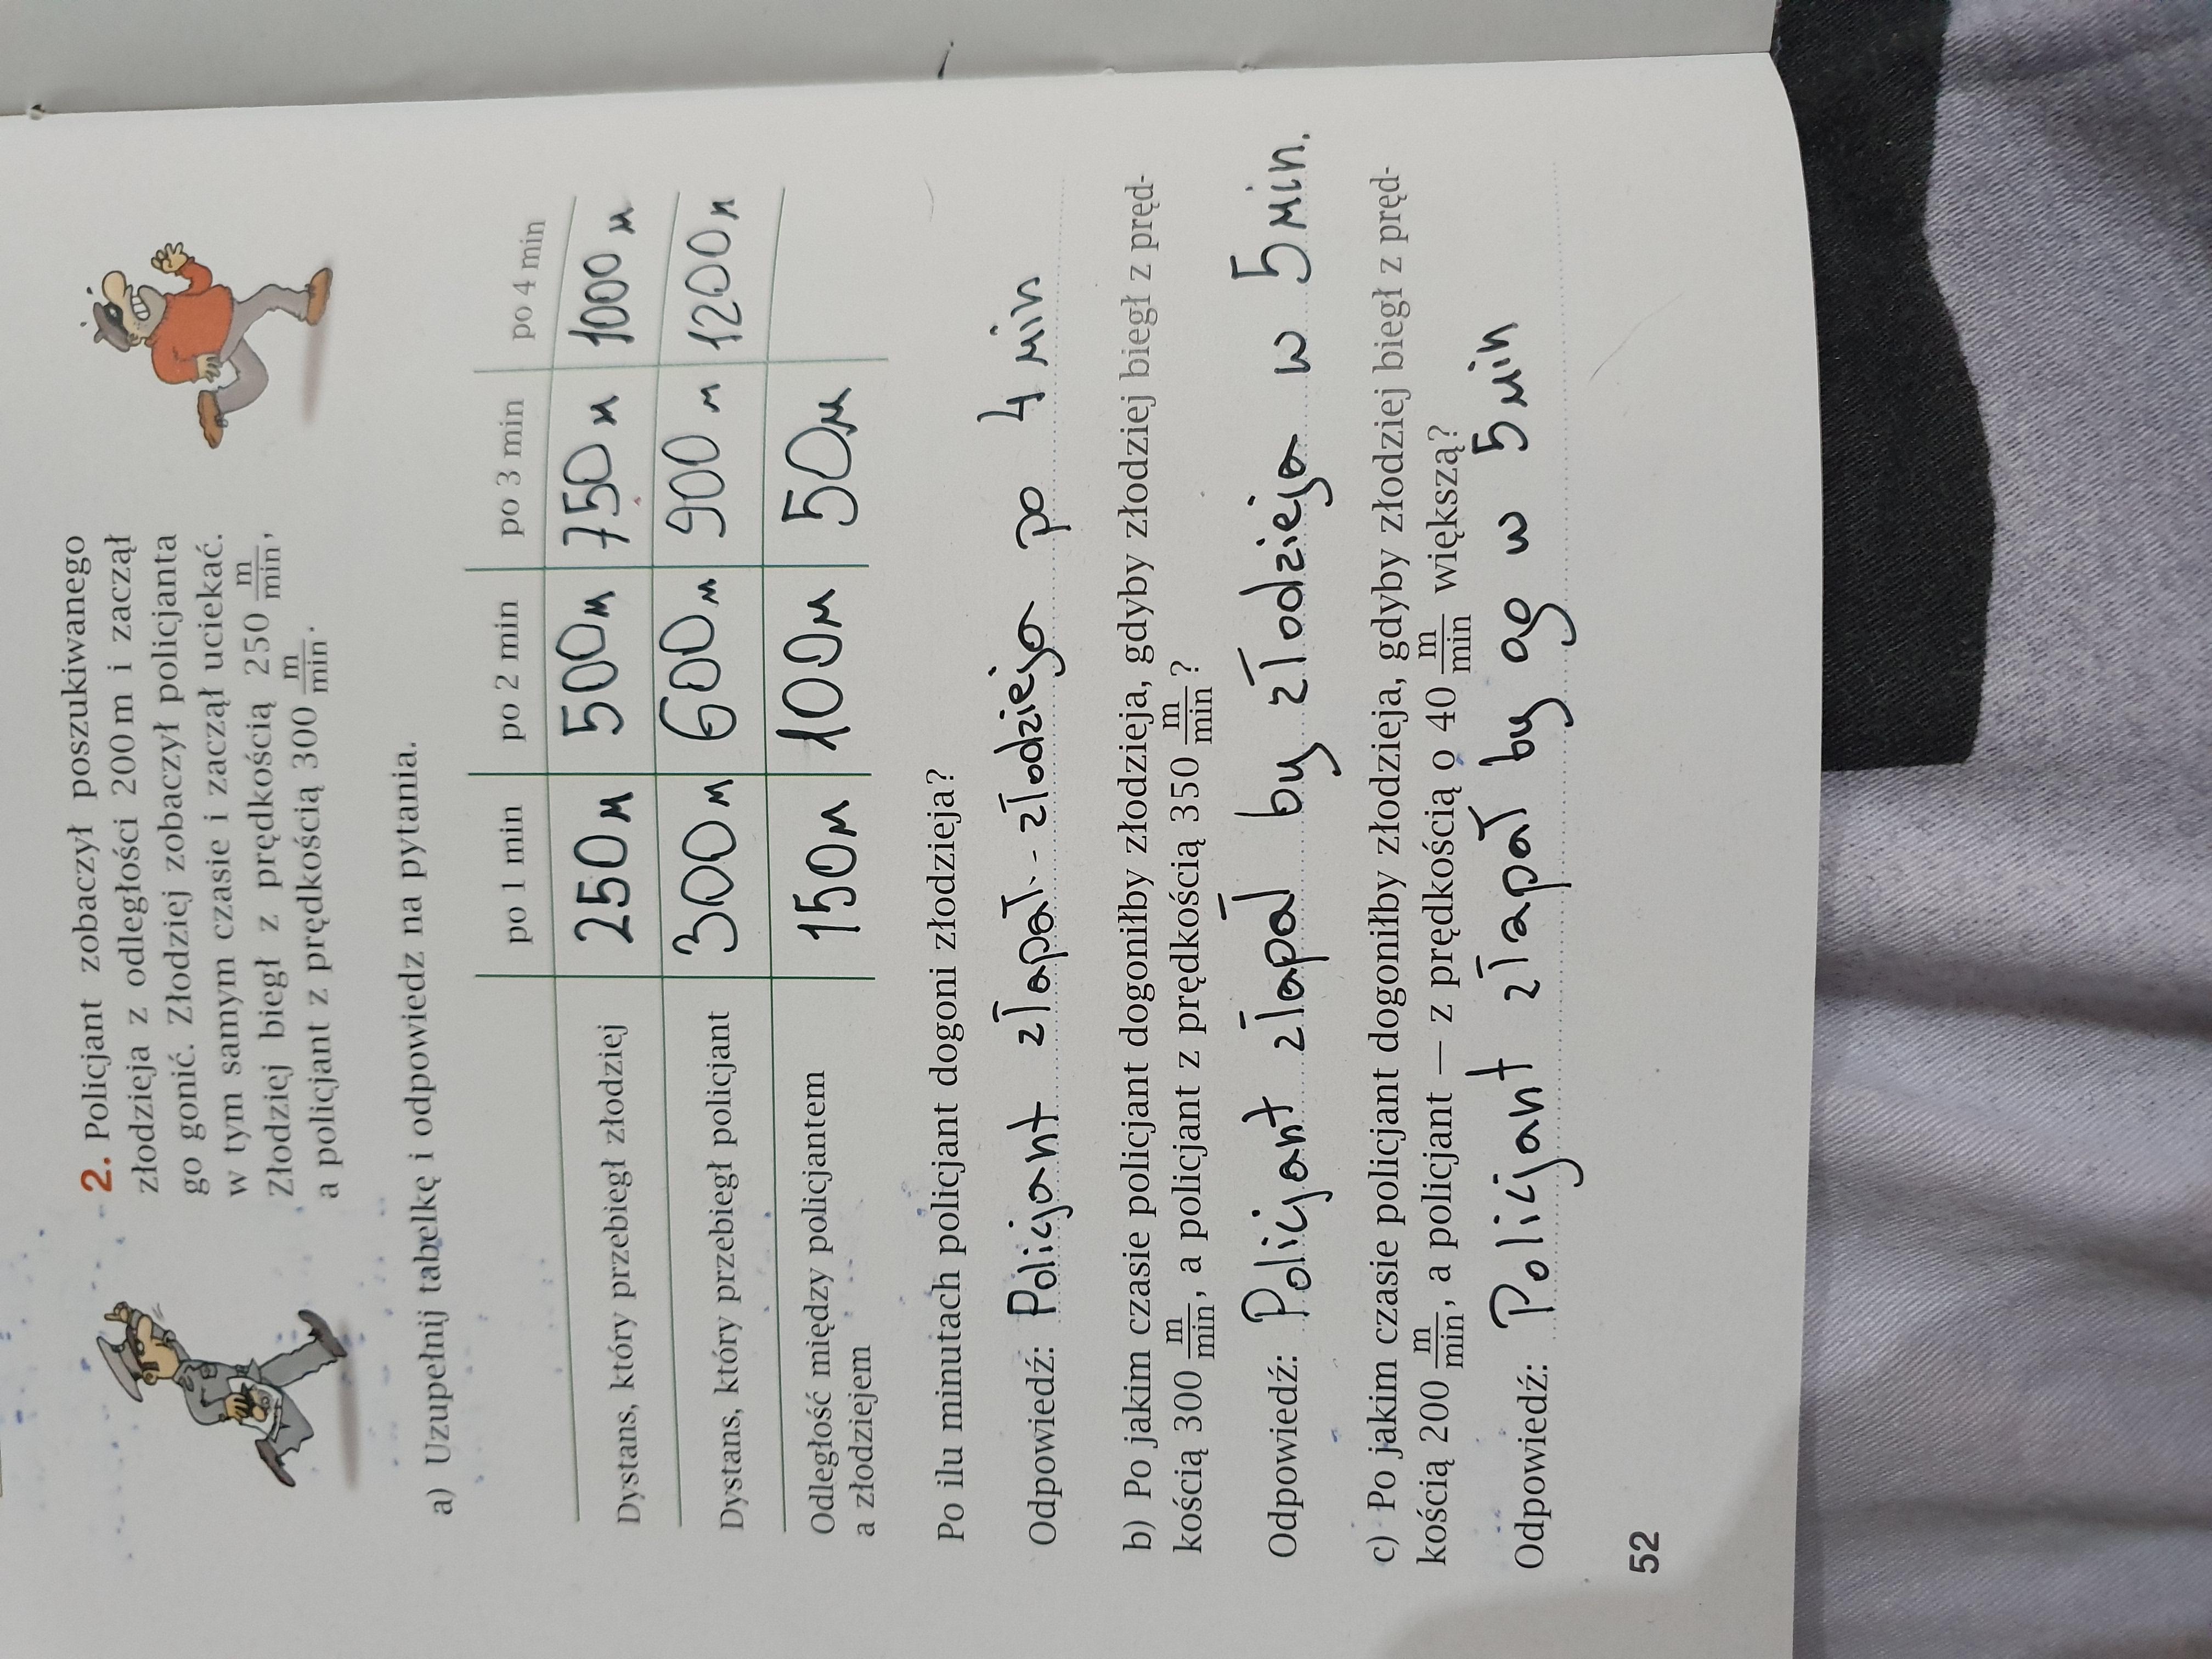 2. Policjant zobaczył poszukiwanego
złodzieja z odległości 200 m i zaczął
go gonić. Złodziej zobaczył policjanta
w tym samym czasie i zaczął uciekać.
Złodziej biegł z prędkością 250 m/min,
a policjant z prędkością 300 m/min.
a) Uzupełnij tabelkę i odpowiedz na pytania.
po 1 min po 2 min po 3 min po 4 min
Dystans, który przebiegł złodziej 250m 500m 750m 1000m
Dystans, który przebiegł policjant 300m 600m 900m 1200m
Odległość między policjantem
a złodziejem 150m 100m 50m
Po ilu minutach policjant dogoni złodzieja?
Odpowiedź: Policjant złapał złodzieja po 4 min
b) Po jakim czasie policjant dogoniłby złodzieja, gdyby złodziej biegł z pręd-
kością 300 m/min, a policjant z prędkością 350 m/min?
Odpowiedź: Policjant złapał by złodzieja w 5 min.
c) Po jakim czasie policjant dogoniłby złodzieja, gdyby złodziej biegł z pręd-
kością 200 m/min, a policjant — z prędkością o 40 m/min większą?
Odpowiedź: Policjant złapał by go w 5 min
52